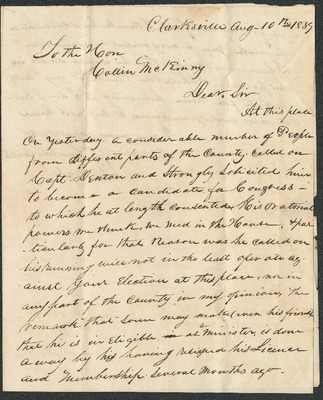 Clarksville Aug- 10th 1839
To the Hon
Collin McKinny
Dear, Sir
At this place
On Yesterday a considerable number of People
from different parts of the County, called on
Capt Denton and Strongly Solicited him
to become a candidate for Congress-
to which he at length consented, His Oratorial
powers we think, we need in the House, & par
ticularly for that Reason was he called on
his running will not in the least operate ag-
ainst Your Election at this place, nor in
any part of the County in my opinion, The
remark that some may make, even his friends
that he is in Eligible as a Minister, is done
away by his having resigned his Licence
and Membership Several Months ago-